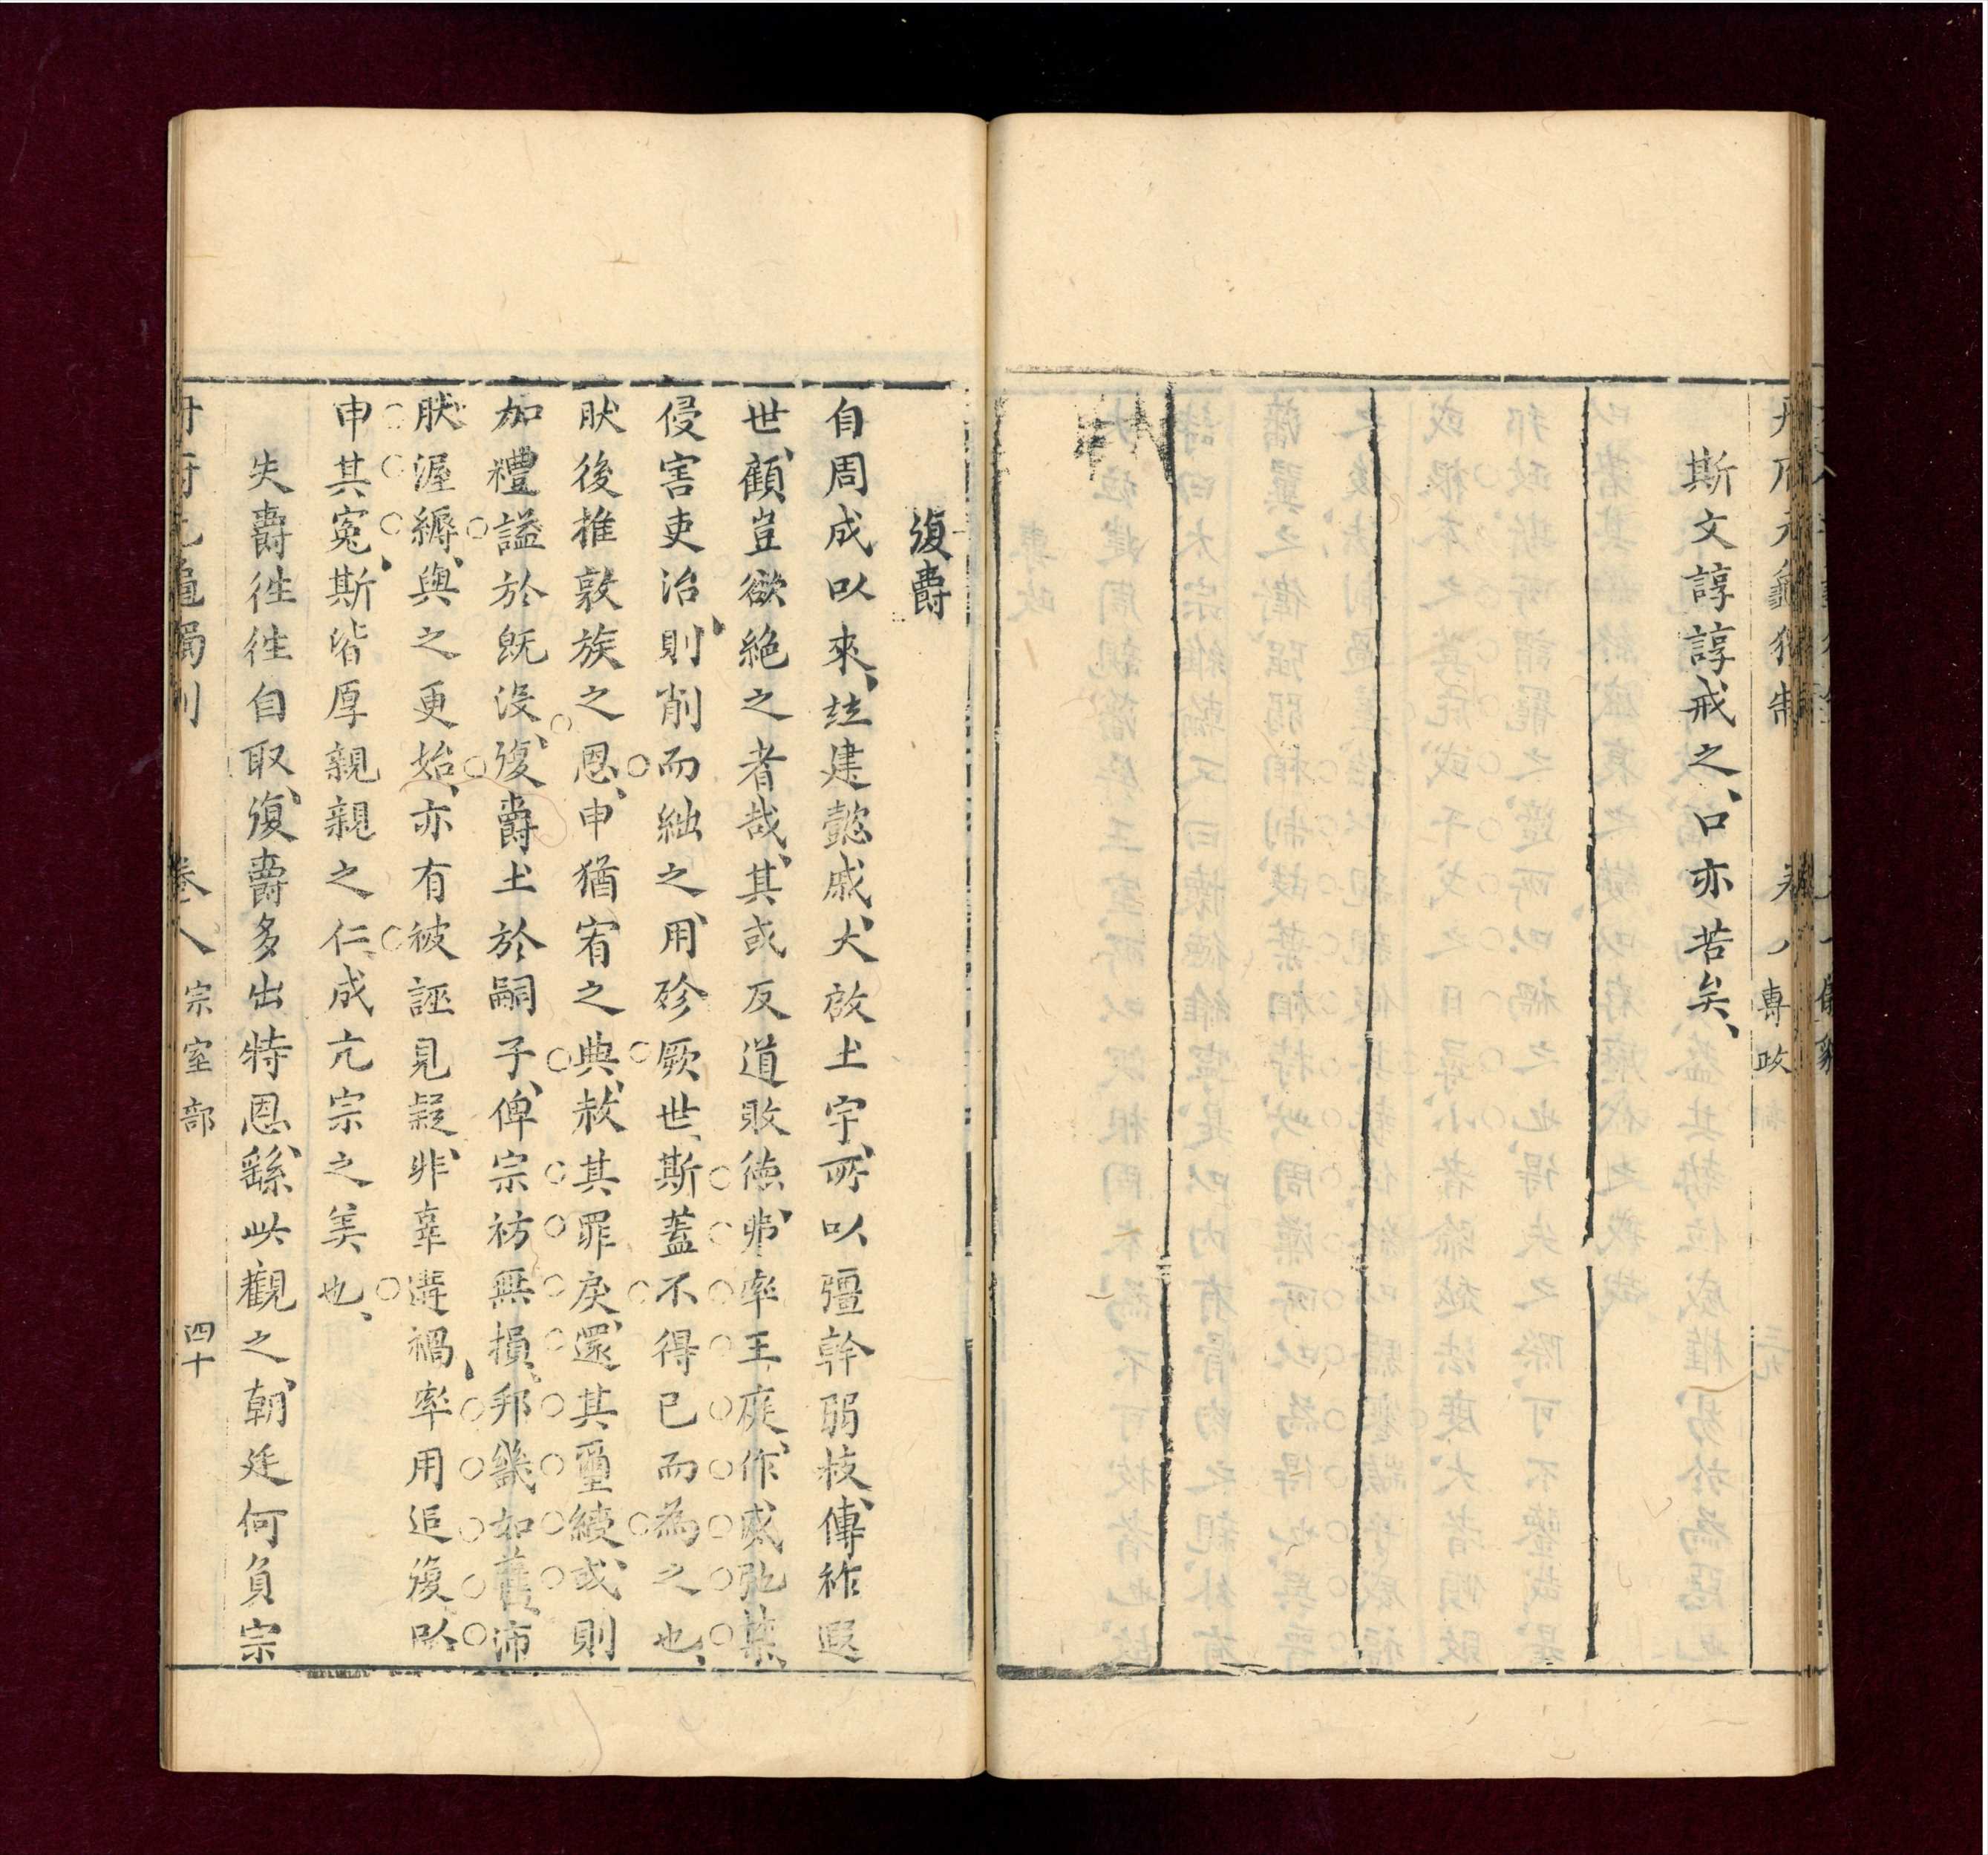 斯文諄諄戒之、口亦苦矣、
專政
復爵
自周成以來、竝建懿戚、大啟土宇、所以彊幹弱枝、傳祚遐
世、顧豈欲絶之者哉、其或反道敗德、弗率王庭、作威弛禁、
侵害吏治、則削而絀之、用殄厥世、斯蓋不得已而為之也、
肰後推敦族之恩、申猶宥之典、赦其罪戾、還其璽綬、或則
加禮謚於旣沒、復爵土於嗣子、俾宗祊無損、邦畿如舊、沛
肰渥縟、與之更始、亦有被誣見疑、非辜遘禍、率用追復、以
申其寃、斯皆厚親親之仁、成亢宗之美也、
失爵徃徃自取、復爵多出特恩、繇此觀之、朝廷何負宗
卷八 宗室部 四十